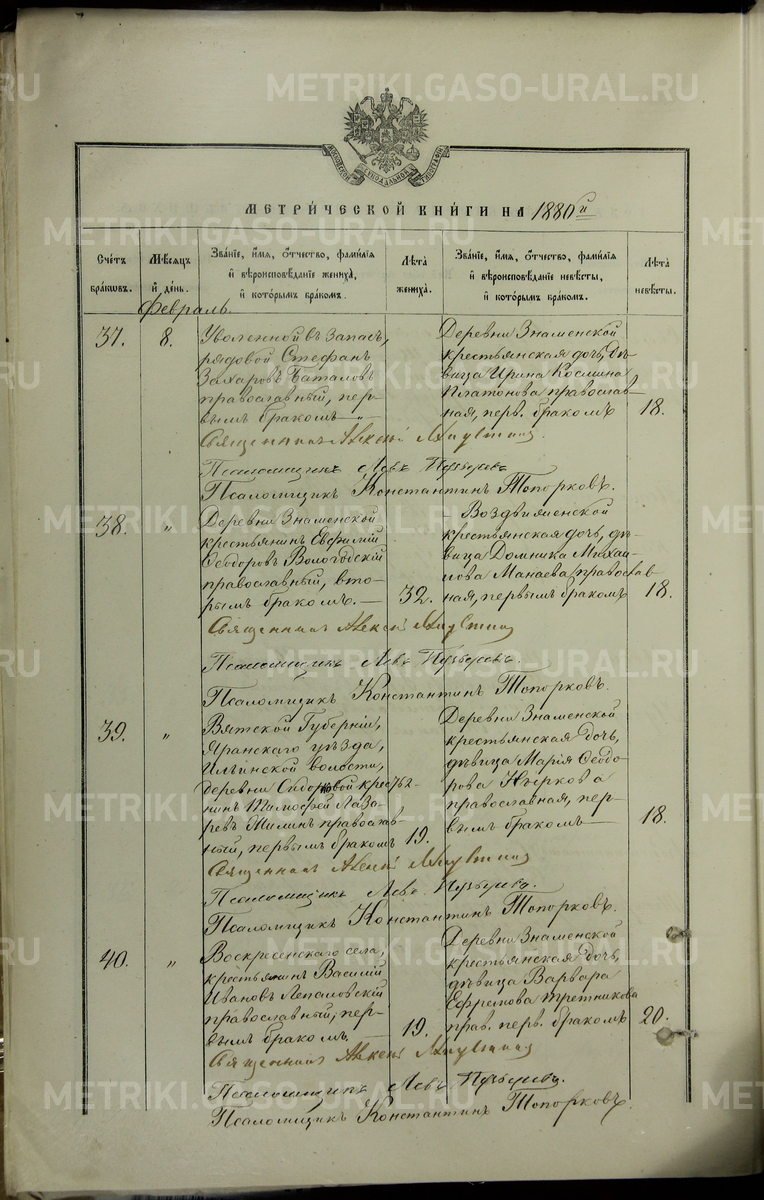 METRIKI.GASO-URAL.RU
МОСКОВСКОЙ СѴНОДАЛЬНОЙ ТИПОГРАФІИ
МЕТРИ́ЧЕСКОЙ КНИ́ГИ НА 1880й
Сче́тъ бра́ковъ.
Мѣ́сяцъ и́ де́нь.
Зва́нїе, и́мя, ѻ҆́тчество, фами́лїя и҆ вѣроисповѣ́данїе жениха̀, и҆ кото́рымъ бра́комъ.
Лѣ́та жениха̀.
Зва́нїе, и́мя, ѻ҆́тчество, фами́лїя и҆ вѣроисповѣ́данїе невѣ́сты, и҆ кото́рымъ бра́комъ.
Лѣ́та невѣ́сты.
Февраль.
37. 8.
Уволенной въ запасъ,
рядовой Стефанъ
Захаровъ Баталовъ
православный, пер-
вымъ бракомъ —"
Деревни Знаменской
крестьянская дочь, дѣ-
вица Ирина Космина
Платонова православ-
ная, перв. бракомъ
18.
Священникъ Алексій
Псаломщикъ Левъ
Псаломщикъ Константинъ Топорковъ.
38. "
Деревни Знаменской
крестьянинъ Евфимій
Ѳеодоровъ Вологодскій
православный, вто-
рымъ бракомъ. —
32.
— Воздвиженской
крестьянская дочь, дѣ-
вица Домника Михаи-
лова Манаева православ-
ная, первымъ бракомъ
18.
Священникъ Алексій
Псаломщикъ Левъ
Псаломщикъ Константинъ Топорковъ.
39. "
Вятской Губерніи,
Яранскаго уѣзда,
Ильинской волости,
деревни Сидоровой кресть-
нинъ Тимофей Лаза-
ревъ Жилинъ православ-
ный, первымъ бракомъ
19.
Деревни Знаменской
крестьянская дочь,
дѣвица Марія Ѳеодо-
рова
православная, пер-
вымъ бракомъ —
18.
Священникъ Алексій
Псаломщикъ Левъ
Псаломщикъ Константинъ Топорковъ.
40. "
Воскресенскаго села,
крестьянинъ Василий
Ивановъ Лепаловскій
православный, пер-
вымъ бракомъ. —
19.
Деревни Знаменской
крестьянская дочь,
дѣвица Варвара
Ефремова Третникова
прав. перв. бракомъ
20.
Священникъ Алексій
Псаломщикъ Левъ
Псаломщикъ Константинъ Топорковъ.